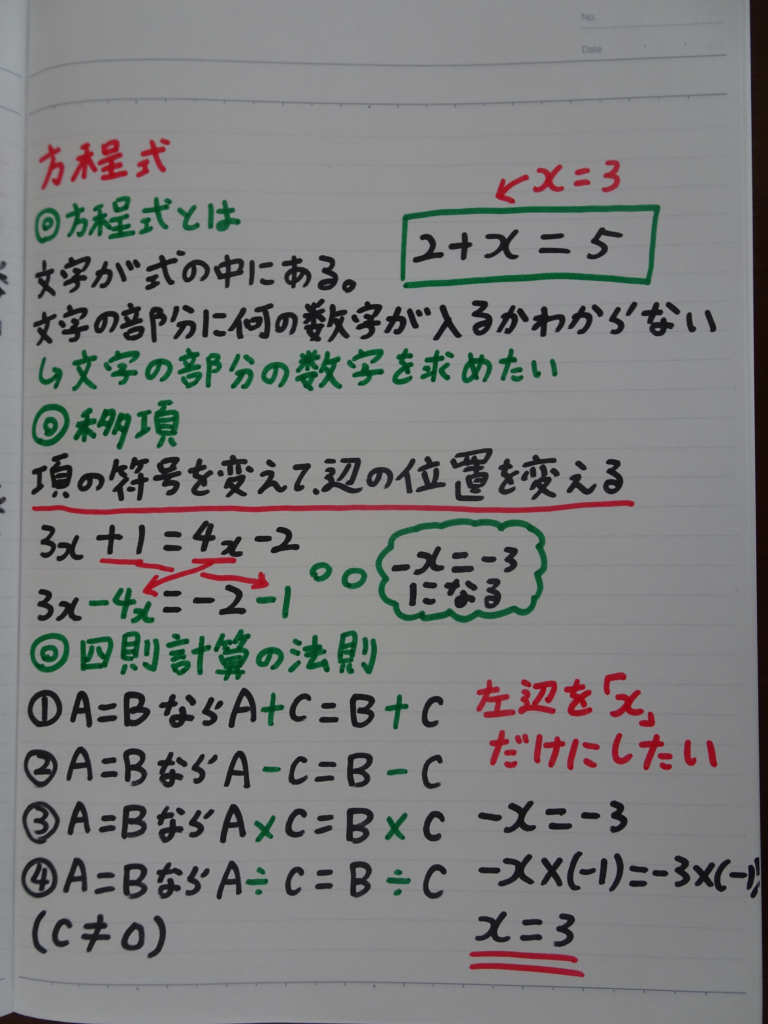 No.
Date
方程式
◎方程式とは
x=3
2+x=5
文字が式の中にある。
文字の部分に何の数字が入るかわからない
↳文字の部分の数字を求めたい
◎移項
項の符号を変えて、辺の位置を変える
3x+1=4x-2
3x-4x=-2-1
-x=-3
になる
◎四則計算の法則
①A=BならA+C=B+C
②A=BならA-C=B-C
③A=BならA×C=B×C
④A=BならA÷C=B÷C
(C≠0)
左辺を「x」
だけにしたい
-x=-3
-x×(-1)=-3×(-1)
x=3